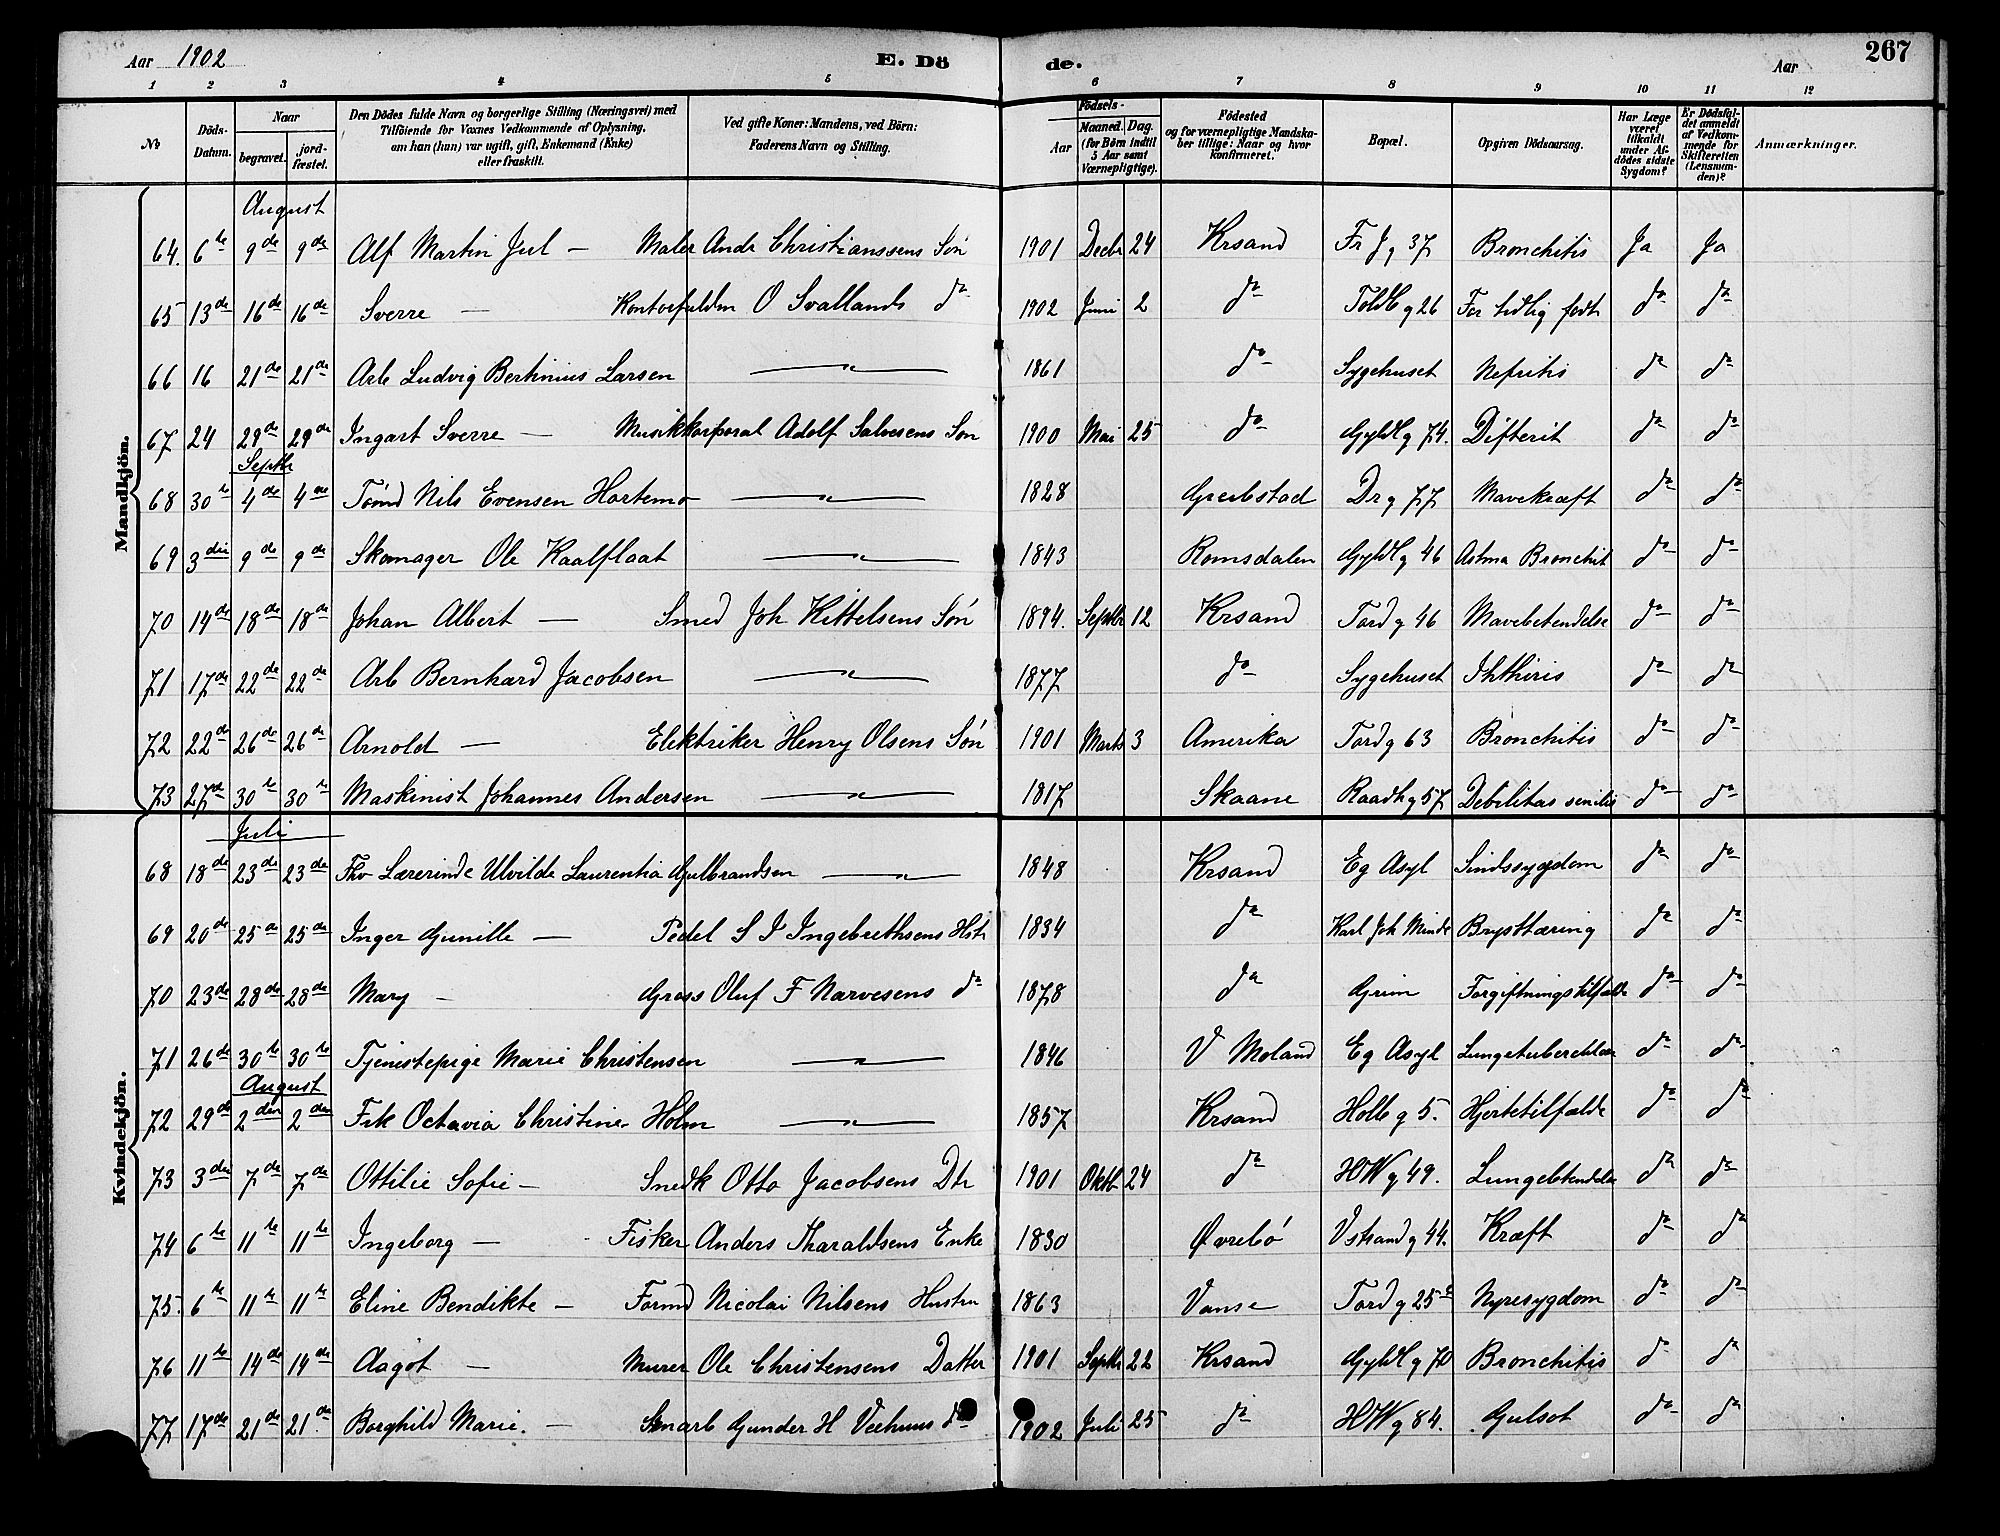 Aar 1902 E. Döde. Aar 267
1 2 3 4 5 6 7 8 9 10 11 12
No Döds-Datum. Naar begravet. jordfæstet. Den Dödes fulde Navn og borgerlige Stilling (Næringsvei) med Tilföiende for Voxnes Vedkommende af Oplysning, om han (hun) var ugift, gift, Enkemand (Enke) eller fraskilt. Ved gifte Koner: Mandens, ved Börn: Faderens Navn og Stilling. Födsels- Aar Maaned. Dag. (for Börn indtil 5 Aar samt Værnepligtige). Födested og for værnepligtige Mandskaber tillige: Naar og hvor konfirmeret. Bopæl. Opgiven Dödsaarsag. Har Læge været tilkaldt under Afdödes sidste Sygdom? Er Dödsfaldet anmeldt af Vedkommende for Skifteretten (Lensmanden)? Anmærkninger.
Mandkjön.
August
64. 6te 9de 9de Alf Martin Jul — Maler Andr Christianssens Søn 1901 Decbr 24 Krsand Fr J g 37 Bronchitis Ja Ja
65 13de 16de 16de Sverre — O Svallands do 1902 Juni 2 do Toldb g 26 For tidlig født do do
66 16 21de 21de Arb Ludvig Bertinius Larsen — " — 1861 do Sygehuset Nefritis do do
67 24 29de 29de Ingart Sverre — Musikkorporal Adolf Salvesens Søn 1900 Mai 25 do Gyldl g 74. Difterit do do
Septbr
68 30te 4de 4de Tømd Nils Evensen Hortemo — " — 1828 Greibstad Dr g 77 Mavekræft do do
69 3die 9de 9de Skomager Ole Kaalflaat — " — 1843 Romsdalen Gyldl g 46 Astma Bronchit do do
70 14de 18de 18de Johan Albert — Smed Joh Kittelsens Søn 1894. Septbr 12 Krsand Tord g 46 Mavebetendelse do do
71 17de 22de 22de Arb Bernhard Jacobsen — " — 1877 do Sygehuset Phthisis do do
72 22de 26de 26de Arnold — Elektriker Henry Olsens Søn 1901 Marts 3 Amerika Tord g 63 Bronchitis do do
73 27de 30te 30te Maskinist Johannes Andersen — " — 1817 Skaane Raadh g 57 Debilitas senilis do do
Kvindekjön.
Juli
68 18de 23de 23de Fhv Lærerinde Ulvilde Laurentia Gulbrandsen — " — 1848 Krsand Eg Asyl Sindssygdom do do
69 20de 25de 25de Inger Gunille — Pedel S I Ingebrethsens Hstr 1834 do Karl Joh Minde Brysttæring do do
70 23de 28de 28de Mary — Gross Oluf F Narvesens do 1878 do Grim Forgiftningstilfælde do do
71 26de 30te 30te Tjenestepige Marie Christensen — " — 1846 V Moland Eg Asyl Lungetuberculose do do
August
72 29de 2den 2den Frk Octavia Christine Holm — " — 1857 Krsand Holb g 5. Hjertetilfælde do do
73 3die 7de 7de Ottilie Sofie — Snedk Otto Jacobsens Dtr 1901 Oktb 24 do HW g 49. Lungebetendelse do do
74 6te 11te 11te Ingeborg — Fisker Anders Tharaldsens Enke 1830 Øvrebø Vstrand g 44. Kræft do do
75. 6te 11te 11te Eline Bendikte — Formd Nicolai Nilsens Hustru 1863 Vanse Tord g 25 Nyresygdom do do
76 11te 14de 14de Aagot — Murer Ole Christensens Datter 1901 Septbr 22 Krsand Gyldl g 70 Bronchitis do do
77 17de 21de 21de Borghild Marie. — Gunder H do 1902 Juli 25 do HW g 84. Gulsot do do